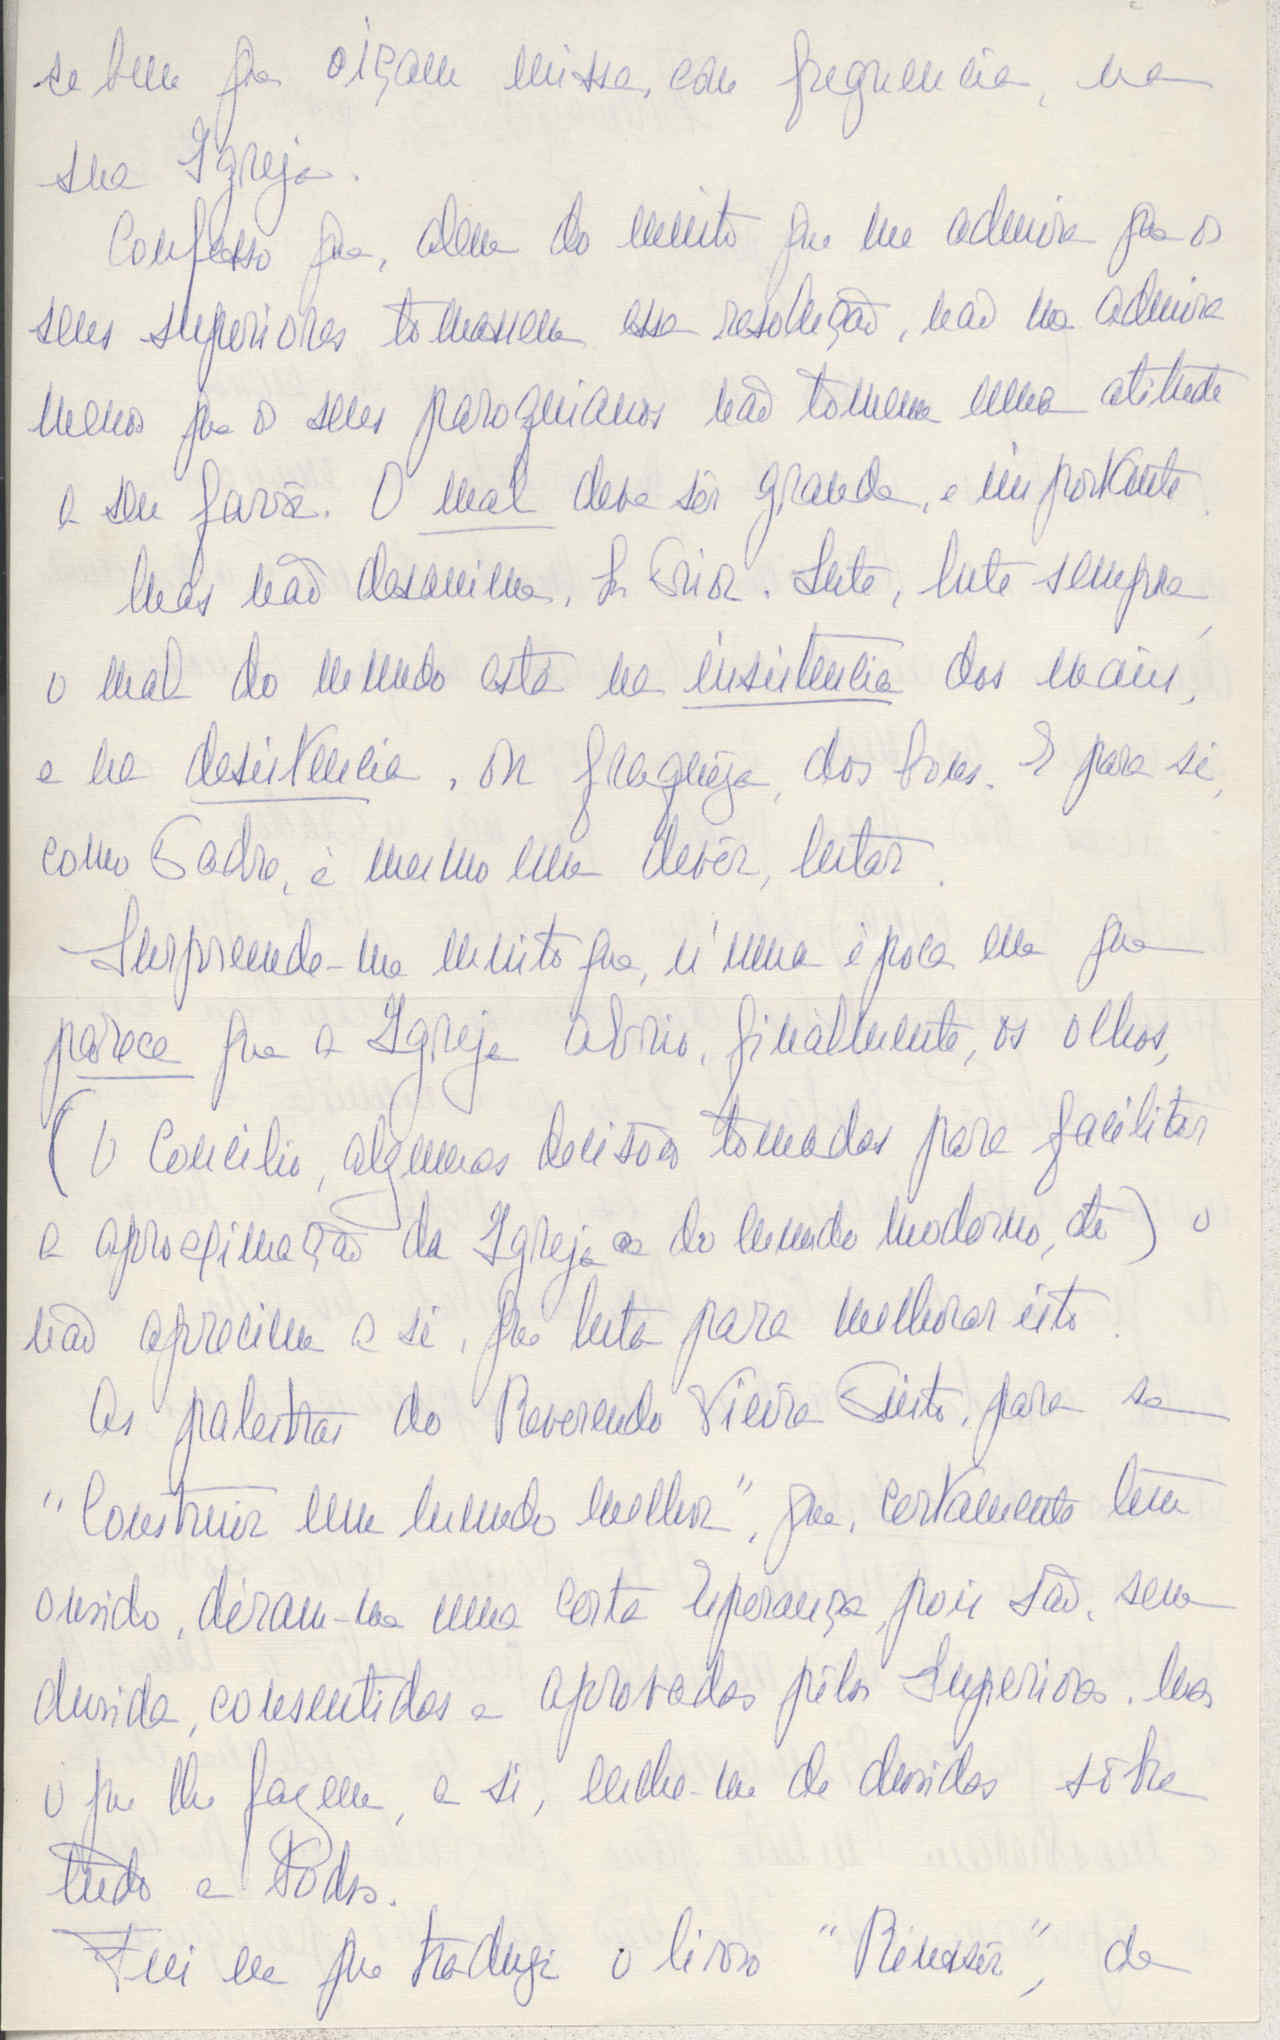 se bem que oiçam missa, com frequencia, na
sua Igreja.
Confesso que, alem do muito que me admira que os
seus superiores tomassem essa resolução, não me admira
menos que os seus paroquianos não tomem uma atitude
a seu favôr. O mal deve ser grande, e importante.
Mas não desanime, Sr Prior. Lute, lute sempre,
o mal do mundo está na insistencia dos maus,
e na desistencia, ou fraqueza, dos bons. E para si,
como Padre, é mesmo um devêr, lutar.
Surpreende-me muito que, n'uma época em que
parece que a Igreja abriu, finalmente, os olhos,
(O Concilio, algumas decisões tomadas para facilitar
a aproximação da Igreja e do mundo moderno, etc) o
não apreciem a si, que luta para melhorar isto.
As palestras do Reverendo Vieira Pinto, para se
"Construir um mundo melhor", que, certamente tem
ouvido, déram-me uma certa esperança, pois são, sem
duvida, consentidas e aprovadas pêlos Superiores. Mas
o que lhe fazem, a si, enche-me de duvidas sôbre
tudo e todos.
Fui eu que traduzi o livro " ", de